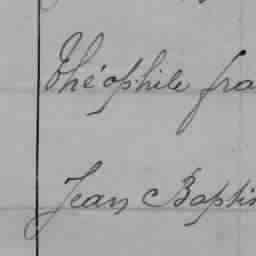 Théophile fra
Jean Baptis